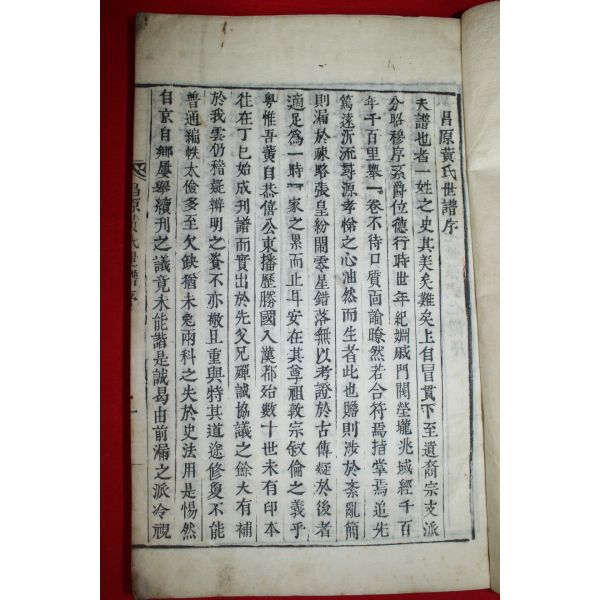 昌原黃氏世譜序
夫譜也者一姓之史其美矣難矣上自冒貫下至遺裔宗支派
分昭穆序系爵位德行時世年紀婣戚門閥塋壠兆域經千百
年千百里擧一卷不待口質面諭瞭然若合符焉指掌焉追先
篤遠沂流尋源孝悌之心油然而生者此也贍則涉於紊亂簡
則漏於疎略張皇紛閙零星錯落無以考證於古傳疑於後者
適足爲一時一家之累而止耳安在其尊祖敦宗叙倫之義乎
粤惟吾黃自恭僖公東播歷勝國入漢都始數十世未有印本
徃在丁巳始成刊譜而實出於先父兄殫誠協議之餘大有補
於我雲仍稽疑辨明之資不亦敬且重與特其道途修敻不能
普通編帙太儉多至欠缺猶未免兩科之失於史法用是惕然
自京自鄉屢擧續刊之議竟未能諧是誠曷由前漏之派冷視
昌原黃氏世譜序
一